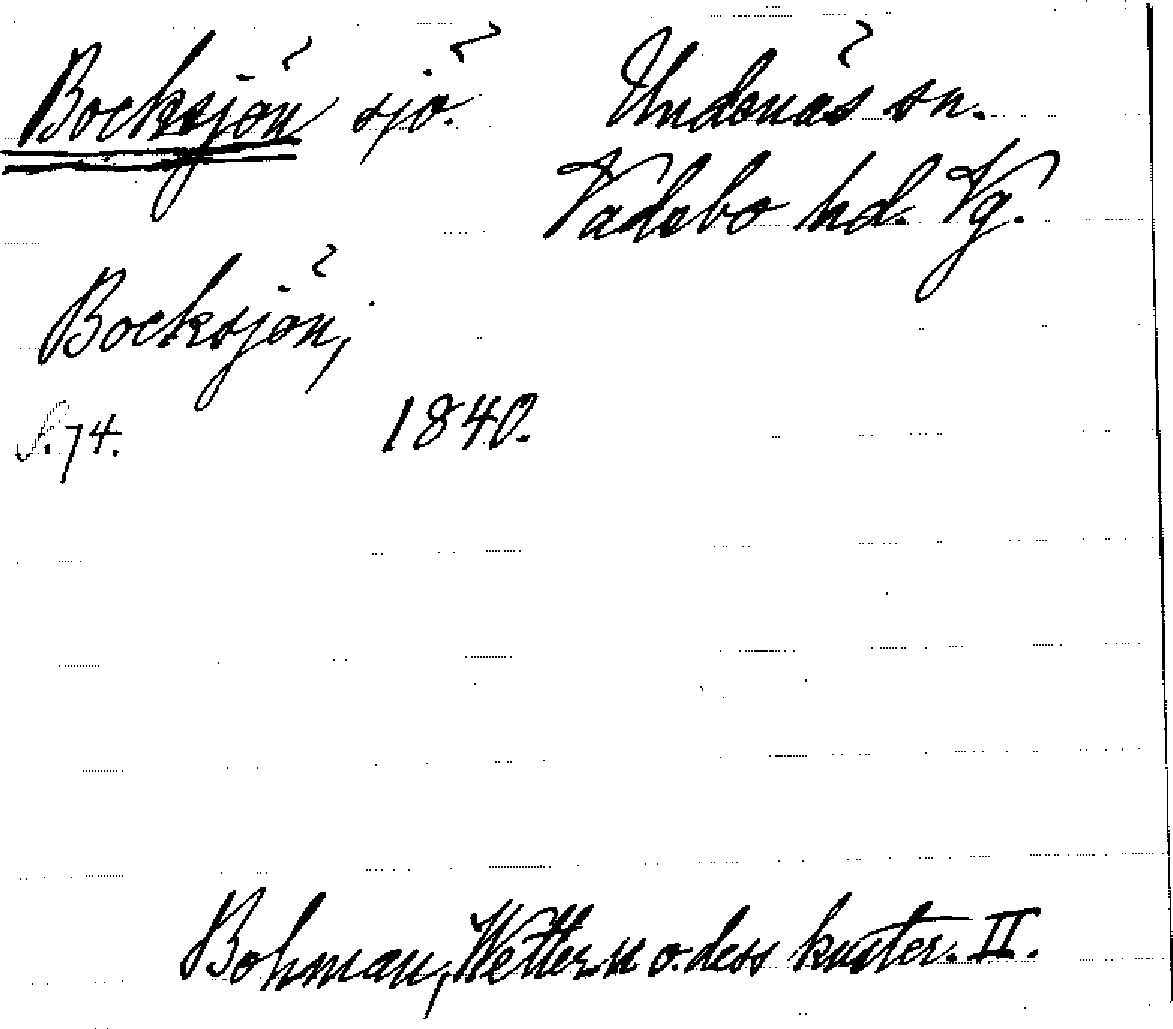 Bocksjön sjö. Undenäs sn.
Vadsbo hd. Vg.
Bocksjön,
S. 74. 1840.
Bohman, Wettern o. dess kuster. II.